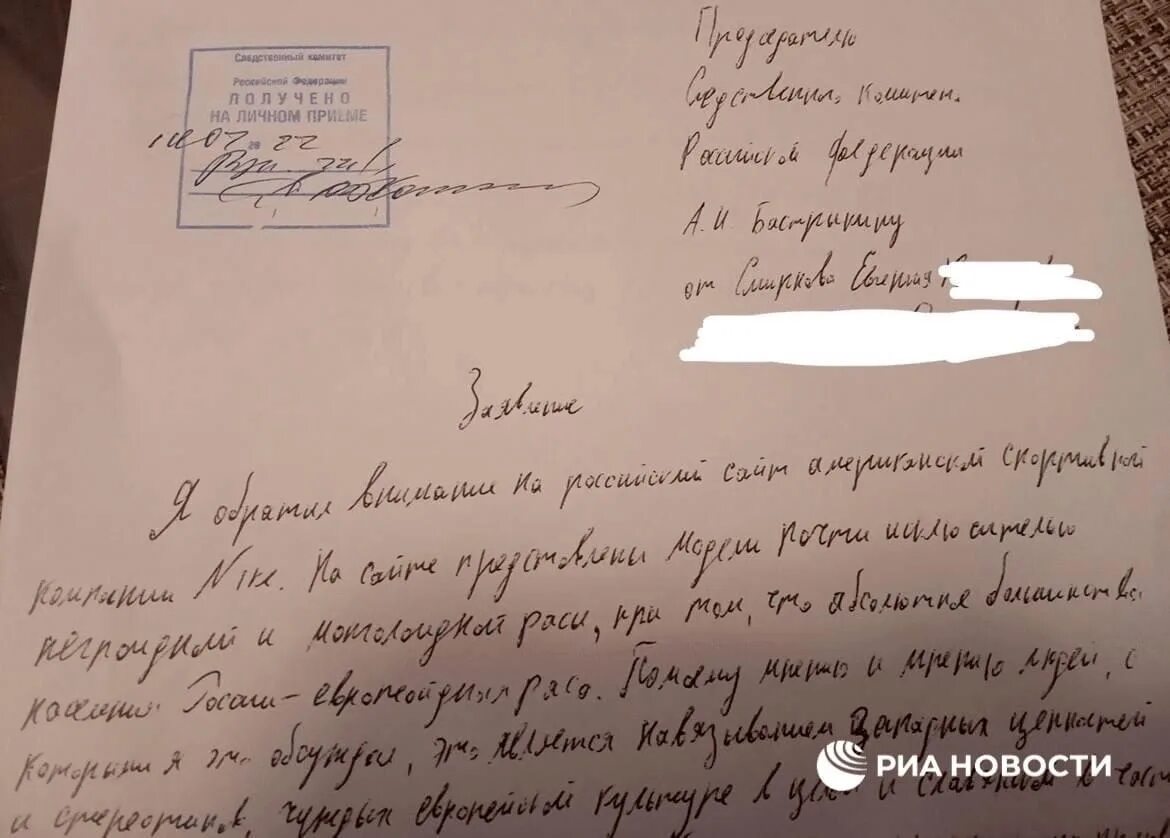 Следственный комитет
Российской Федерации
ПОЛУЧЕНО
НА ЛИЧНОМ ПРИЕМЕ
20 22
Председателю
Следственного комитета
Российской Федерации
А.И. Бастрыкину
от Смирнова Евгения
Заявление
Я обратил внимание на российский сайт американской спортивной
компании Nike. На сайте представлены модели почти исключительно
негроидной и монголоидной расы, при том, что абсолютное большинство
населения России - европейдная раса. Помоему мнению и мнению людей, с
которыми я это обсуждал, это является навязыванием Западных ценностей
и стереотипов, чуждых европейской культуре в целом и славянской в
РИА НОВОСТИ